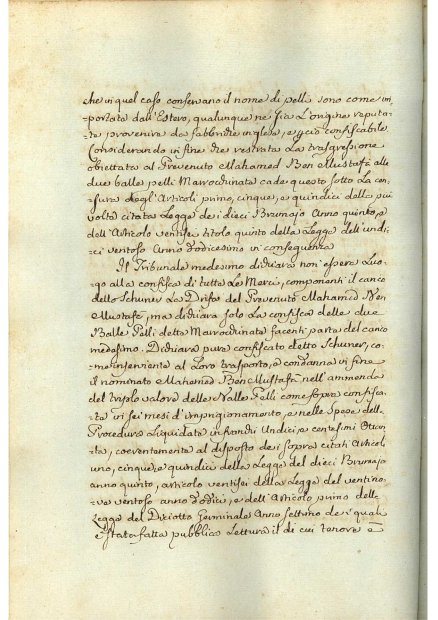 che in quel caso conservano il nome di pelli sono come im-
portate dall'Estero, qualunque ne sia l'origine reputa-
te provenire da fabbriche inglesi, e perciò confiscabile
Considerando in fine che restrata La trasgressione
obiettata al Prevenuto Mahamed Ben Mustafà alle
due balle pelli Marrochinate cade questo sotto La cen-
sura degl'Articoli primo, cinque, e quindici della più
volte citata Legge dei dieci Brumajo Anno quinto, e
dell'Articolo ventisei titolo quinto della Legge dell'undi-
ci ventoso Anno dodicesimo in conseguenza
Il Tribunale medesimo dichiara non essere Luo-
go alla confisca di tutte Le Merci, componenti il carico
dello Schuner La Drisa del Prevenuto Mahamed Ben
Mustafà, ma dichiara solo La confisca delle due
Balle Pelli dette Marrochinate facenti parte del carico
medesimo. Dichiara pure confiscato detto Schuner, co-
me inserviente al Loro trasporto, e condanna in fine
il nominato Mahamed Ben Mustafà nell'ammenda
del triplo valore delle Balle Pelli come sopra confisca-
te in sei mesi d'imprigionamento, e nelle Spese della
Procedura Liquidate in franchi Undici, e centesimi Ottan-
ta, coerentemente al disposto dei sopra citati Articoli
uno, cinque, e quindici della Legge del dieci Brumajo
anno quinto, articolo ventisei della Legge del ventino-
ve ventoso anno dodici, e dell'Articolo primo della
Legge del Diciotto Germinale Anno settimo de i quali
è stata fatta pubblica Lettura il di cui tenore è